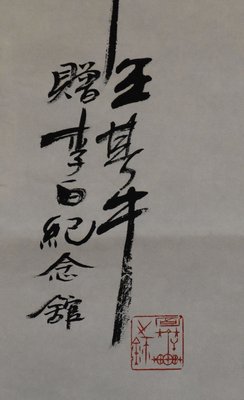 王其牛
贈李白紀念館